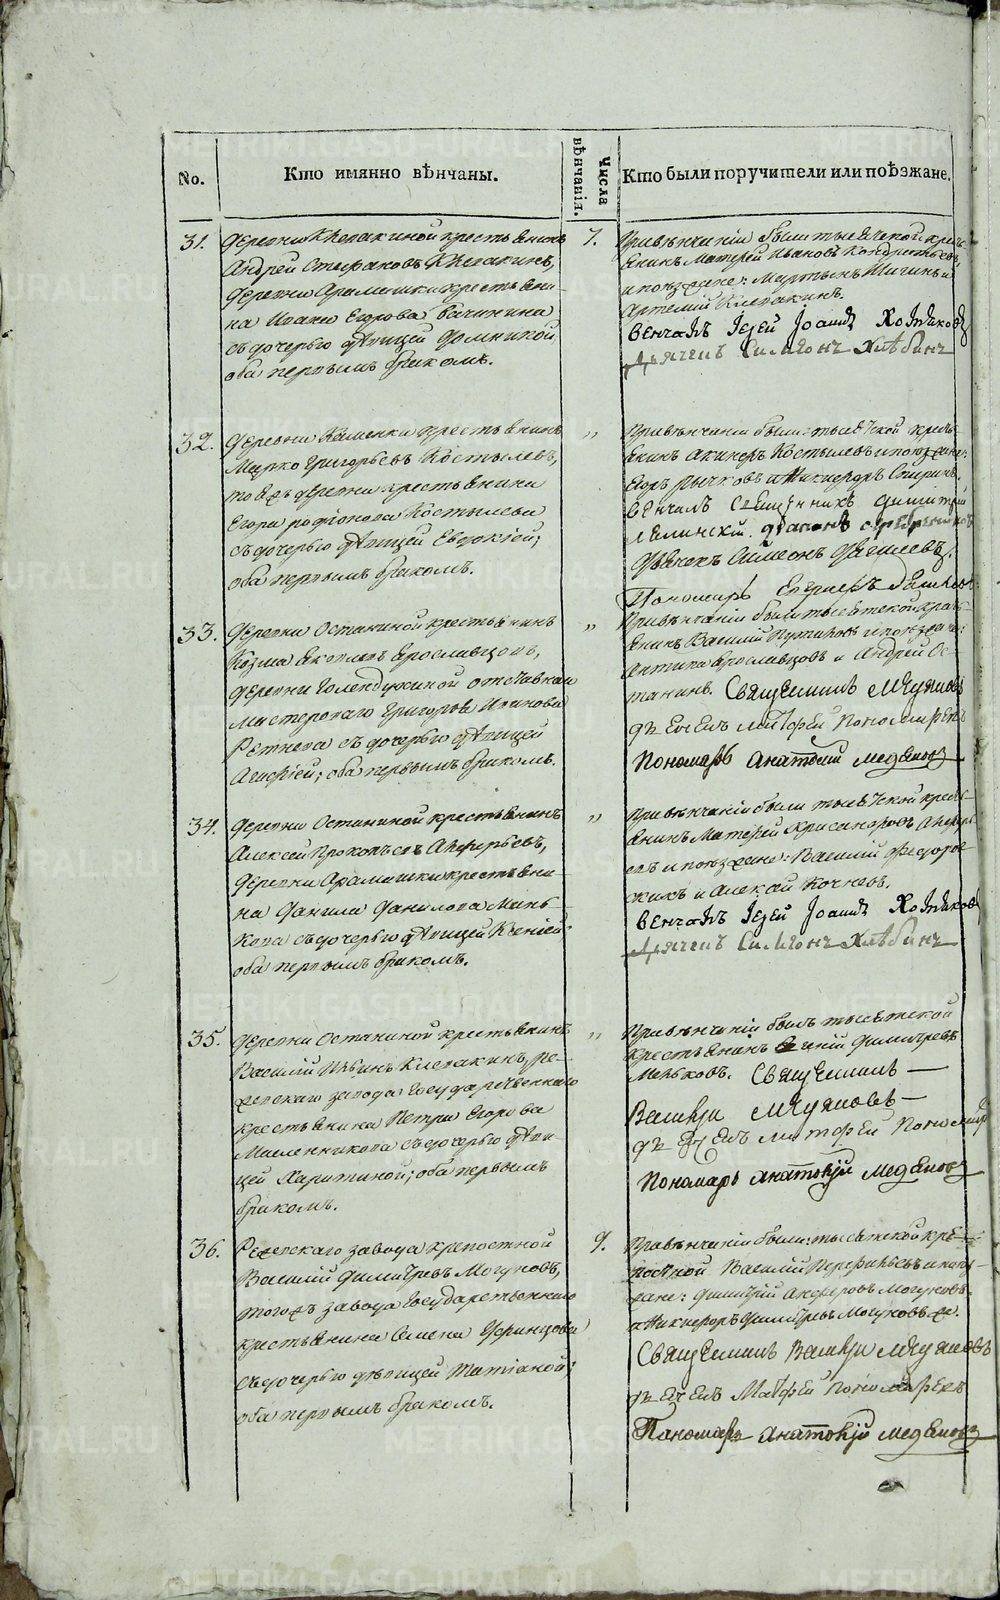 No.
Кто имянно вѣнчаны.
Числа вѣнчанія.
Кто были поручители или поѣзжане.
31.
Деревни Клевакиной крестьянинъ
Андрей Стефановъ Клевакинъ,
деревни Арамашки крестьяни-
на Ивана Егорова Бачинина
съ дочерью дѣвицей Домникой,
оба первымъ бракомъ.
7.
При вѣнчаніи были тысяческой крест-
янинъ Матвей Ивановъ Кондратьевъ,
и поѣзжане: Мартынъ Шигинъ и
Артемий Клевакинъ.
Венчалъ Іерей Іоаннъ Хотяновъ
Дьячекъ Симеонъ Хлѣбинъ
32.
Деревни Каменки крестьянинъ
Марко Григорьевъ Костылевъ,
той же деревни крестьянина
Егора Родіонова Костылева
съ дочерью дѣвицей Евдокіей;
оба первымъ бракомъ.
"
При вѣнчаніи были: тысяческой кресть-
янинъ Костылевъ и поѣзжане:
Егоръ Рычковъ и Никифоръ
венчалъ священникъ Димитрій
діаконъ
Дьячекъ Симеонъ
Пономарь
33.
Деревни Останиной крестьянинъ
Козма Яковлевъ Ярославцовъ,
деревни Голендухиной отставнаго
мастероваго Григорья Иванова
Ретнева съ дочерью дѣвицей
Агафіей; оба первымъ бракомъ.
"
При вѣнчаніи были тысятской крест-
янинъ Василій и поѣзжане:
Антипа Ярославцовъ и Андрей Ос-
танинъ. Священникъ
дьячекъ Матфей Пономаревъ
Пономарь Анатолий Медяновъ
34.
Деревни Останиной крестьянинъ
Алексей Прокопьевъ Алферьевъ,
деревни Арамашки крестьяни-
на Данила Данилова Мань-
кова съ дочерью дѣвицей Ксеніей
оба первымъ бракомъ.
"
При вѣнчаніи были тысяческой кресть-
янинъ Матвей Хрисанфовъ Алферь-
евъ и поѣзжане: Василий Федоров-
скихъ и Алексей Кочневъ.
Венчалъ Іерей Іоаннъ Хотяновъ
Дьячекъ Симеонъ Хлѣбинъ
35.
Деревни Останиной крестьянинъ
Василій Ильинъ Клевакинъ, Ре-
жевскаго завода Государственнаго
крестьянина Петра Егорова
Масленникова съ дочерью дѣви-
цей Харитиной; оба первымъ
бракомъ.
"
При вѣнчаніи былъ тысятской
крестьянинъ Димитріевъ
Меньковъ. Священникъ
дьячекъ Матфей Пономар
Пономарь Анатолій Медяновъ
36.
Режевскаго завода крепостной
Василій Димитріевъ Могуновъ,
того жъ завода Государственнаго
крестьянина Семена Уфинцова
съ дочерью дѣвицей Татіаной;
оба первымъ бракомъ.
9.
При вѣнчаніи были: тысятской кре-
постной Василій Перфильевъ и поѣз-
жане: Димитрій Анферовъ Могуновъ,
и Никифоръ Димитріевъ Могуновъ же.
Священникъ
дьячекъ Матфей Пономаревъ
Пономарь Анатолій Медяновъ
METRIKI.GASO-URAL.RU